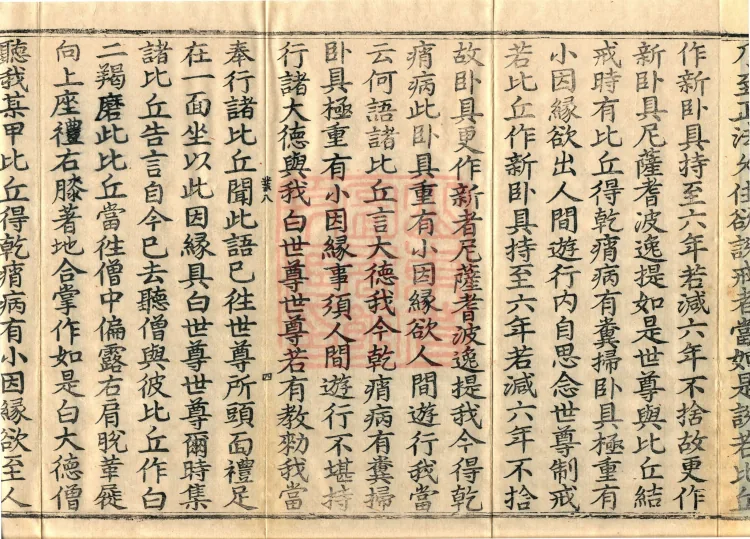 乃至正法久住欲說戒者當如是說若比丘
作新臥具持至六年若減六年不捨故更作
新臥具尼薩耆波逸提如是世尊與比丘結
戒時有比丘得乾痟病有糞掃臥具極重有
小因緣欲出人間遊行內自思念世尊制戒
若比丘作新臥具持至六年若減六年不捨
故臥具更作新者尼薩耆波逸提我今得乾
痟病此臥具重有小因緣欲人間遊行我當
云何語諸比丘言大德我今乾痟病有糞掃
臥具極重有小因緣事須人間遊行不堪持
行諸大德與我白世尊世尊若有教勑我當
業八 四
奉行諸比丘聞此語已往世尊所頭面禮足
在一面坐以此因緣具白世尊世尊爾時集
諸比丘告言自今已去聽僧與彼比丘作白
二羯磨此比丘當往僧中偏露右肩脫革屣
向上座禮右膝著地合掌作如是白大德僧
聽我某甲比丘得乾痟病有小因緣欲至人